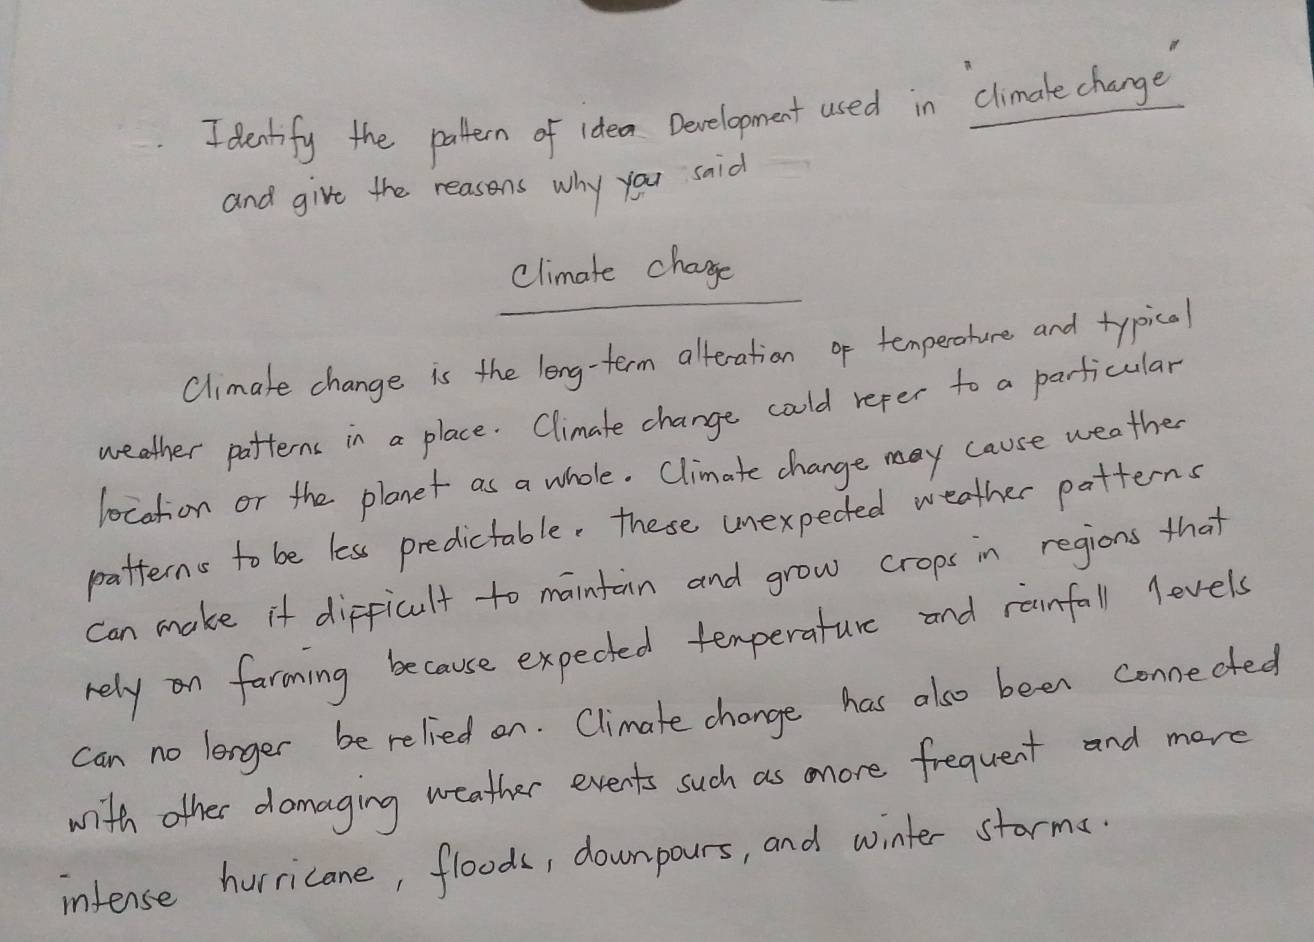 Identify the pattern of idea Development used in "climate change"
and give the reasons why you said
Climate change
Climate change is the long-term alteration of temperature and typical
weather patterns in a place. Climate change could refer to a particular
location or the planet as a whole. Climate change may cause weather
patterns to be less predictable. These unexpected weather patterns
can make it difficult to maintain and grow crops in regions that
rely on farming because expected temperature and rainfall levels
can no longer be relied on. Climate change has also been connected
with other damaging weather events such as more frequent and more
intense hurricane, floods, downpours, and winter storms.